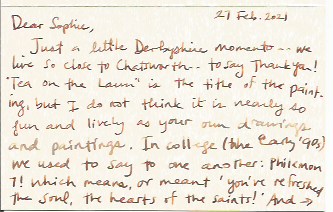 27 Feb. 2021
Dear Sophie,
Just a little Derbyshire momento -- we
live so close to Chatsworth -- to say Thank you!
"Tea on the Lawn" is the title of the paint-
ing, but I do not think it is nearly so
fun and lively as your own drawings
and paintings. In college (the early '90s)
we used to say to one another: Philemon
7! which means, or meant 'you've refreshed
the soul, the hearts of the saints!' And →